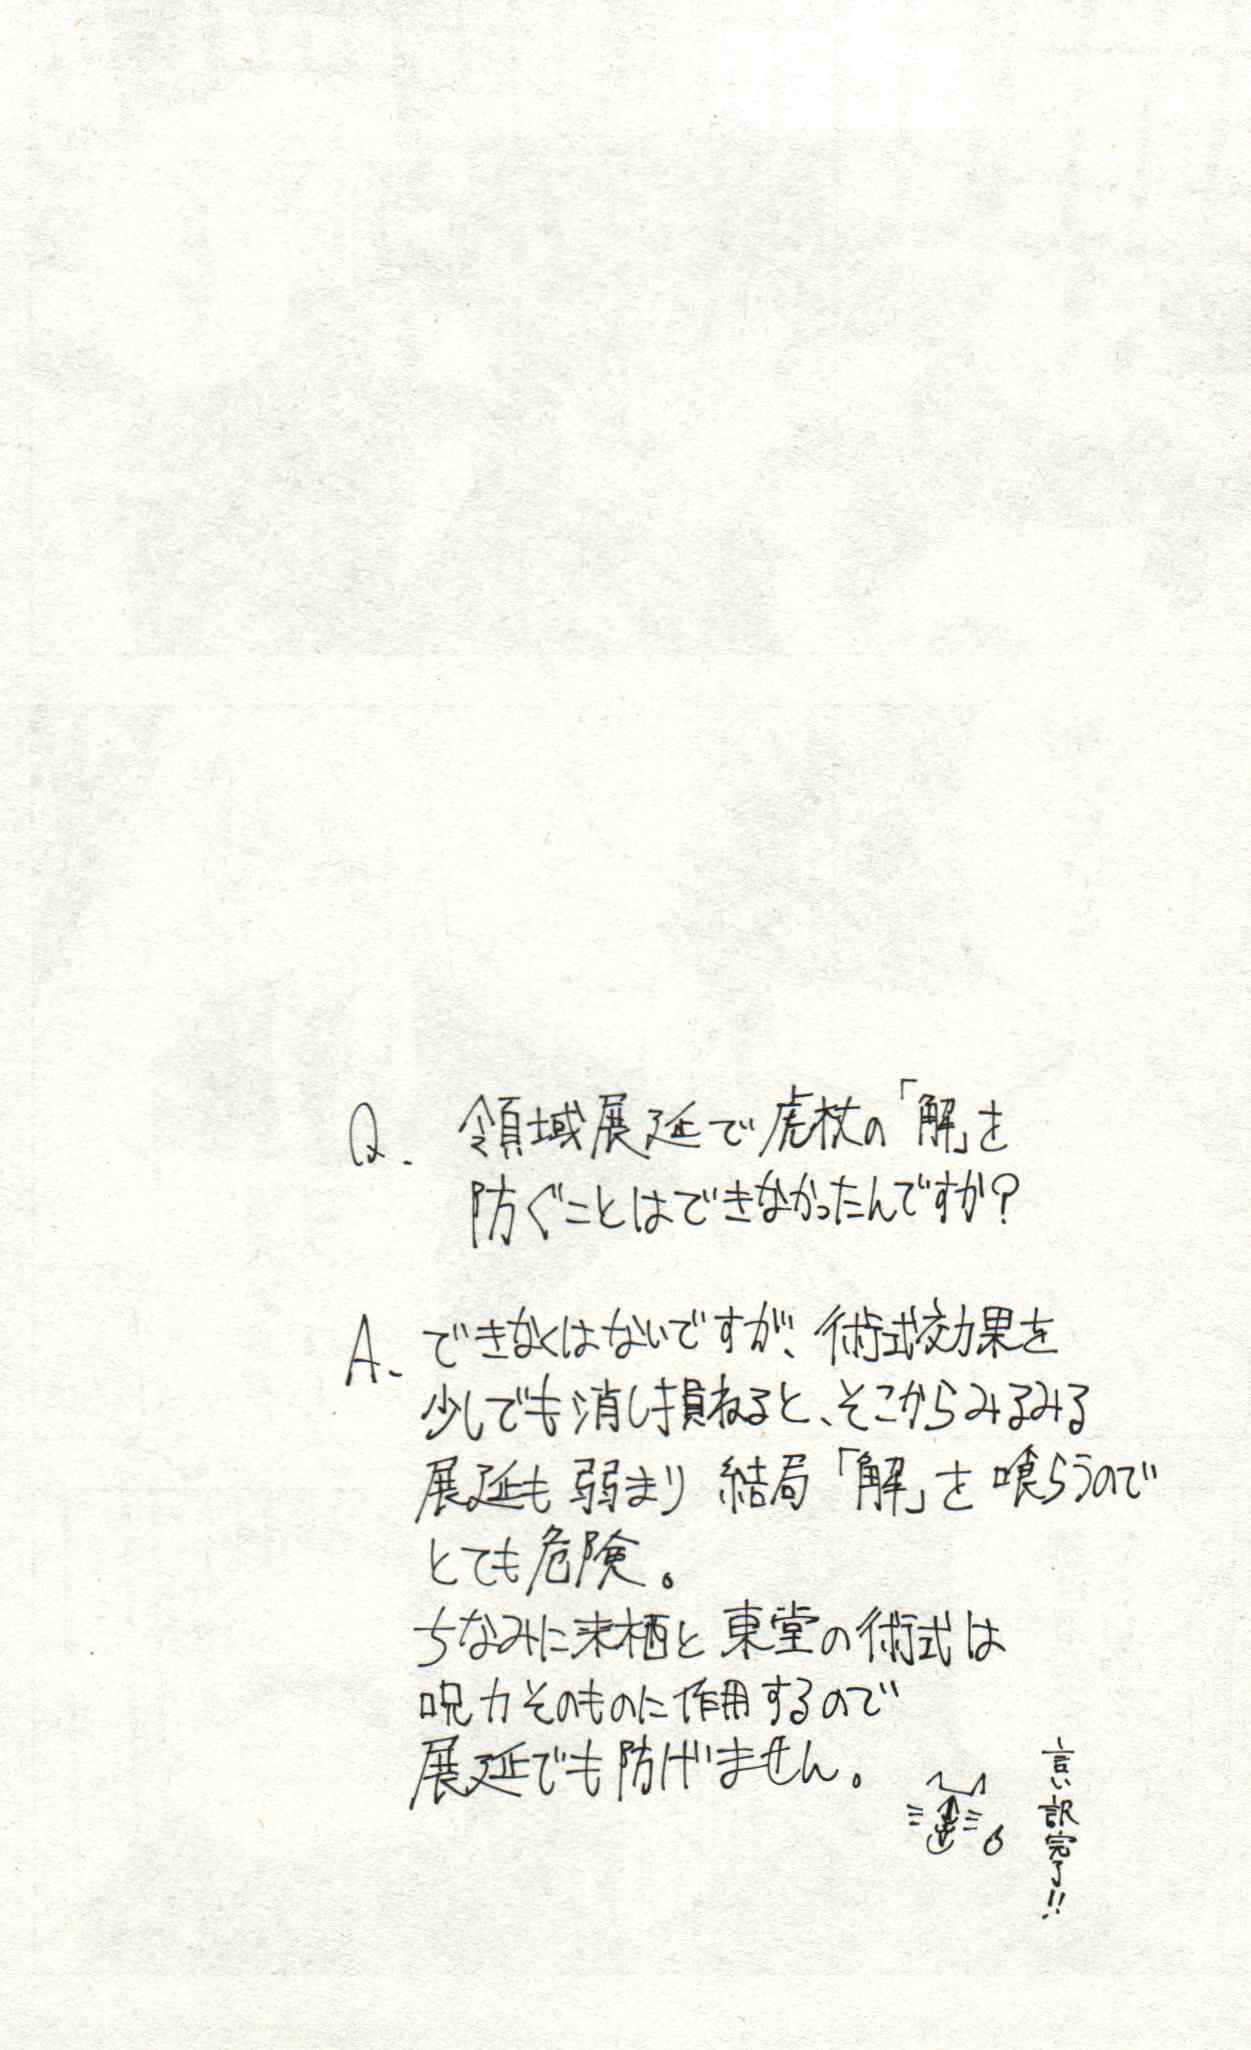 Q. 領域展延で虎杖の「解」を
防ぐことはできなかったんですか?
A. できなくはないですが、術式効果を
少しでも消し損ねると、そこからみるみる
展延も弱まり 結局「解」を喰らうので
とても危険。
ちなみに来栖と東堂の術式は
呪力そのものに作用するので
展延でも防げません。
言い訳完了!!